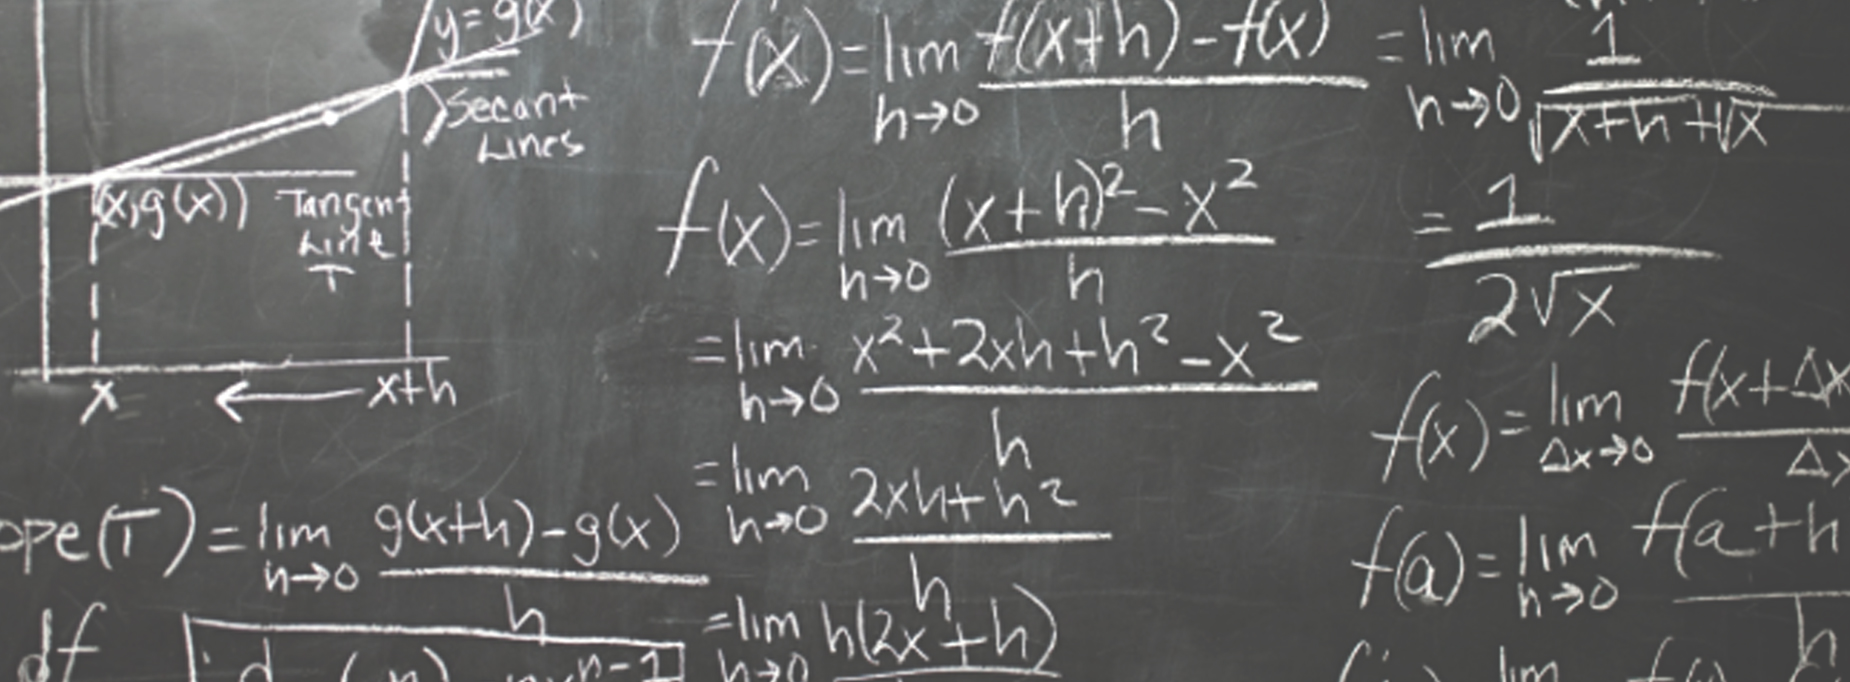 y = g(x)
Secant
Lines
(x, g(x))
Tangent
Line
T
x ← x+h
ope(T) = lim h→0 g(x+h) - g(x) / h
df
d (n) n-1
f(x) = lim h→0 f(x+h) - f(x) / h
f(x) = lim h→0 (x+h)² - x² / h
= lim h→0 x² + 2xh + h² - x² / h
= lim h→0 2xh + h² / h
= lim h→0 h(2x+h)
= lim h→0 1 / √x+h + √x
= 1 / 2√x
f(x) = lim Δx→0 f(x+Δx / Δx
f(a) = lim h→0 f(a+h / h
lim